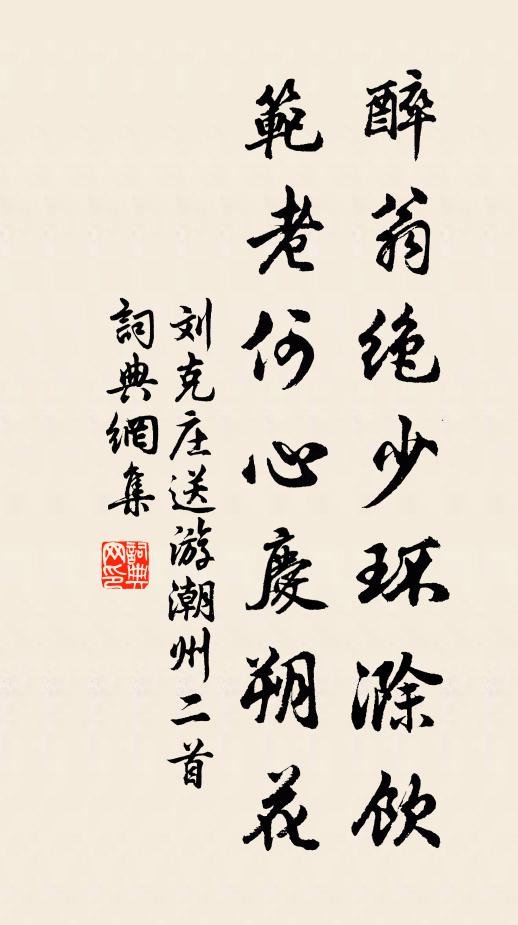 醉翁绝少环滁饮
範老何心慶朔花
刘克庄送游潮州二首
詞典網集
詞典网印